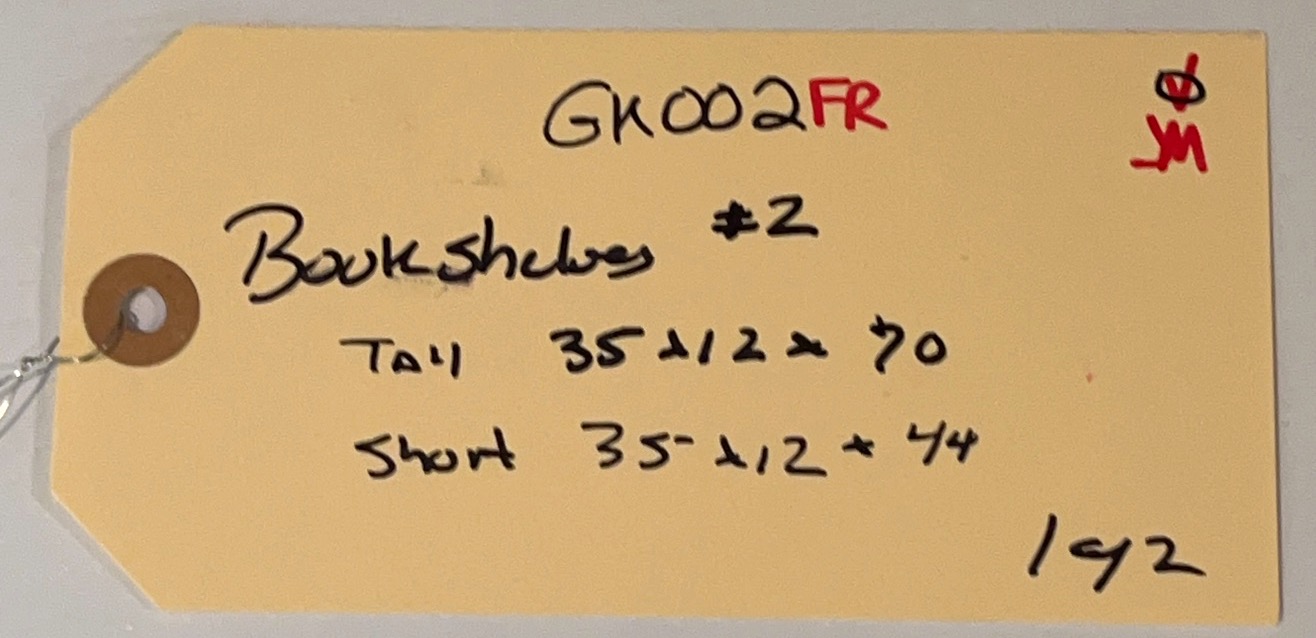 GK002FR
JM
Bookshelves #2
Tall 35 x 12 x 70
Short 35 x 12 x 44